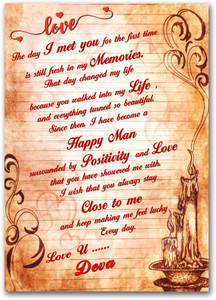 love
The day I met you for the first time
is still fresh in my Memories.
That day changed my life
because you walked into my Life ,
and everything turned so beautiful.
Since then, I have become a
Happy Man
surrounded by Positivity and Love
that you have showered me with.
I wish that you always stay
Close to me
and keep making me feel lucky
Every day.
Love U ......
Deva